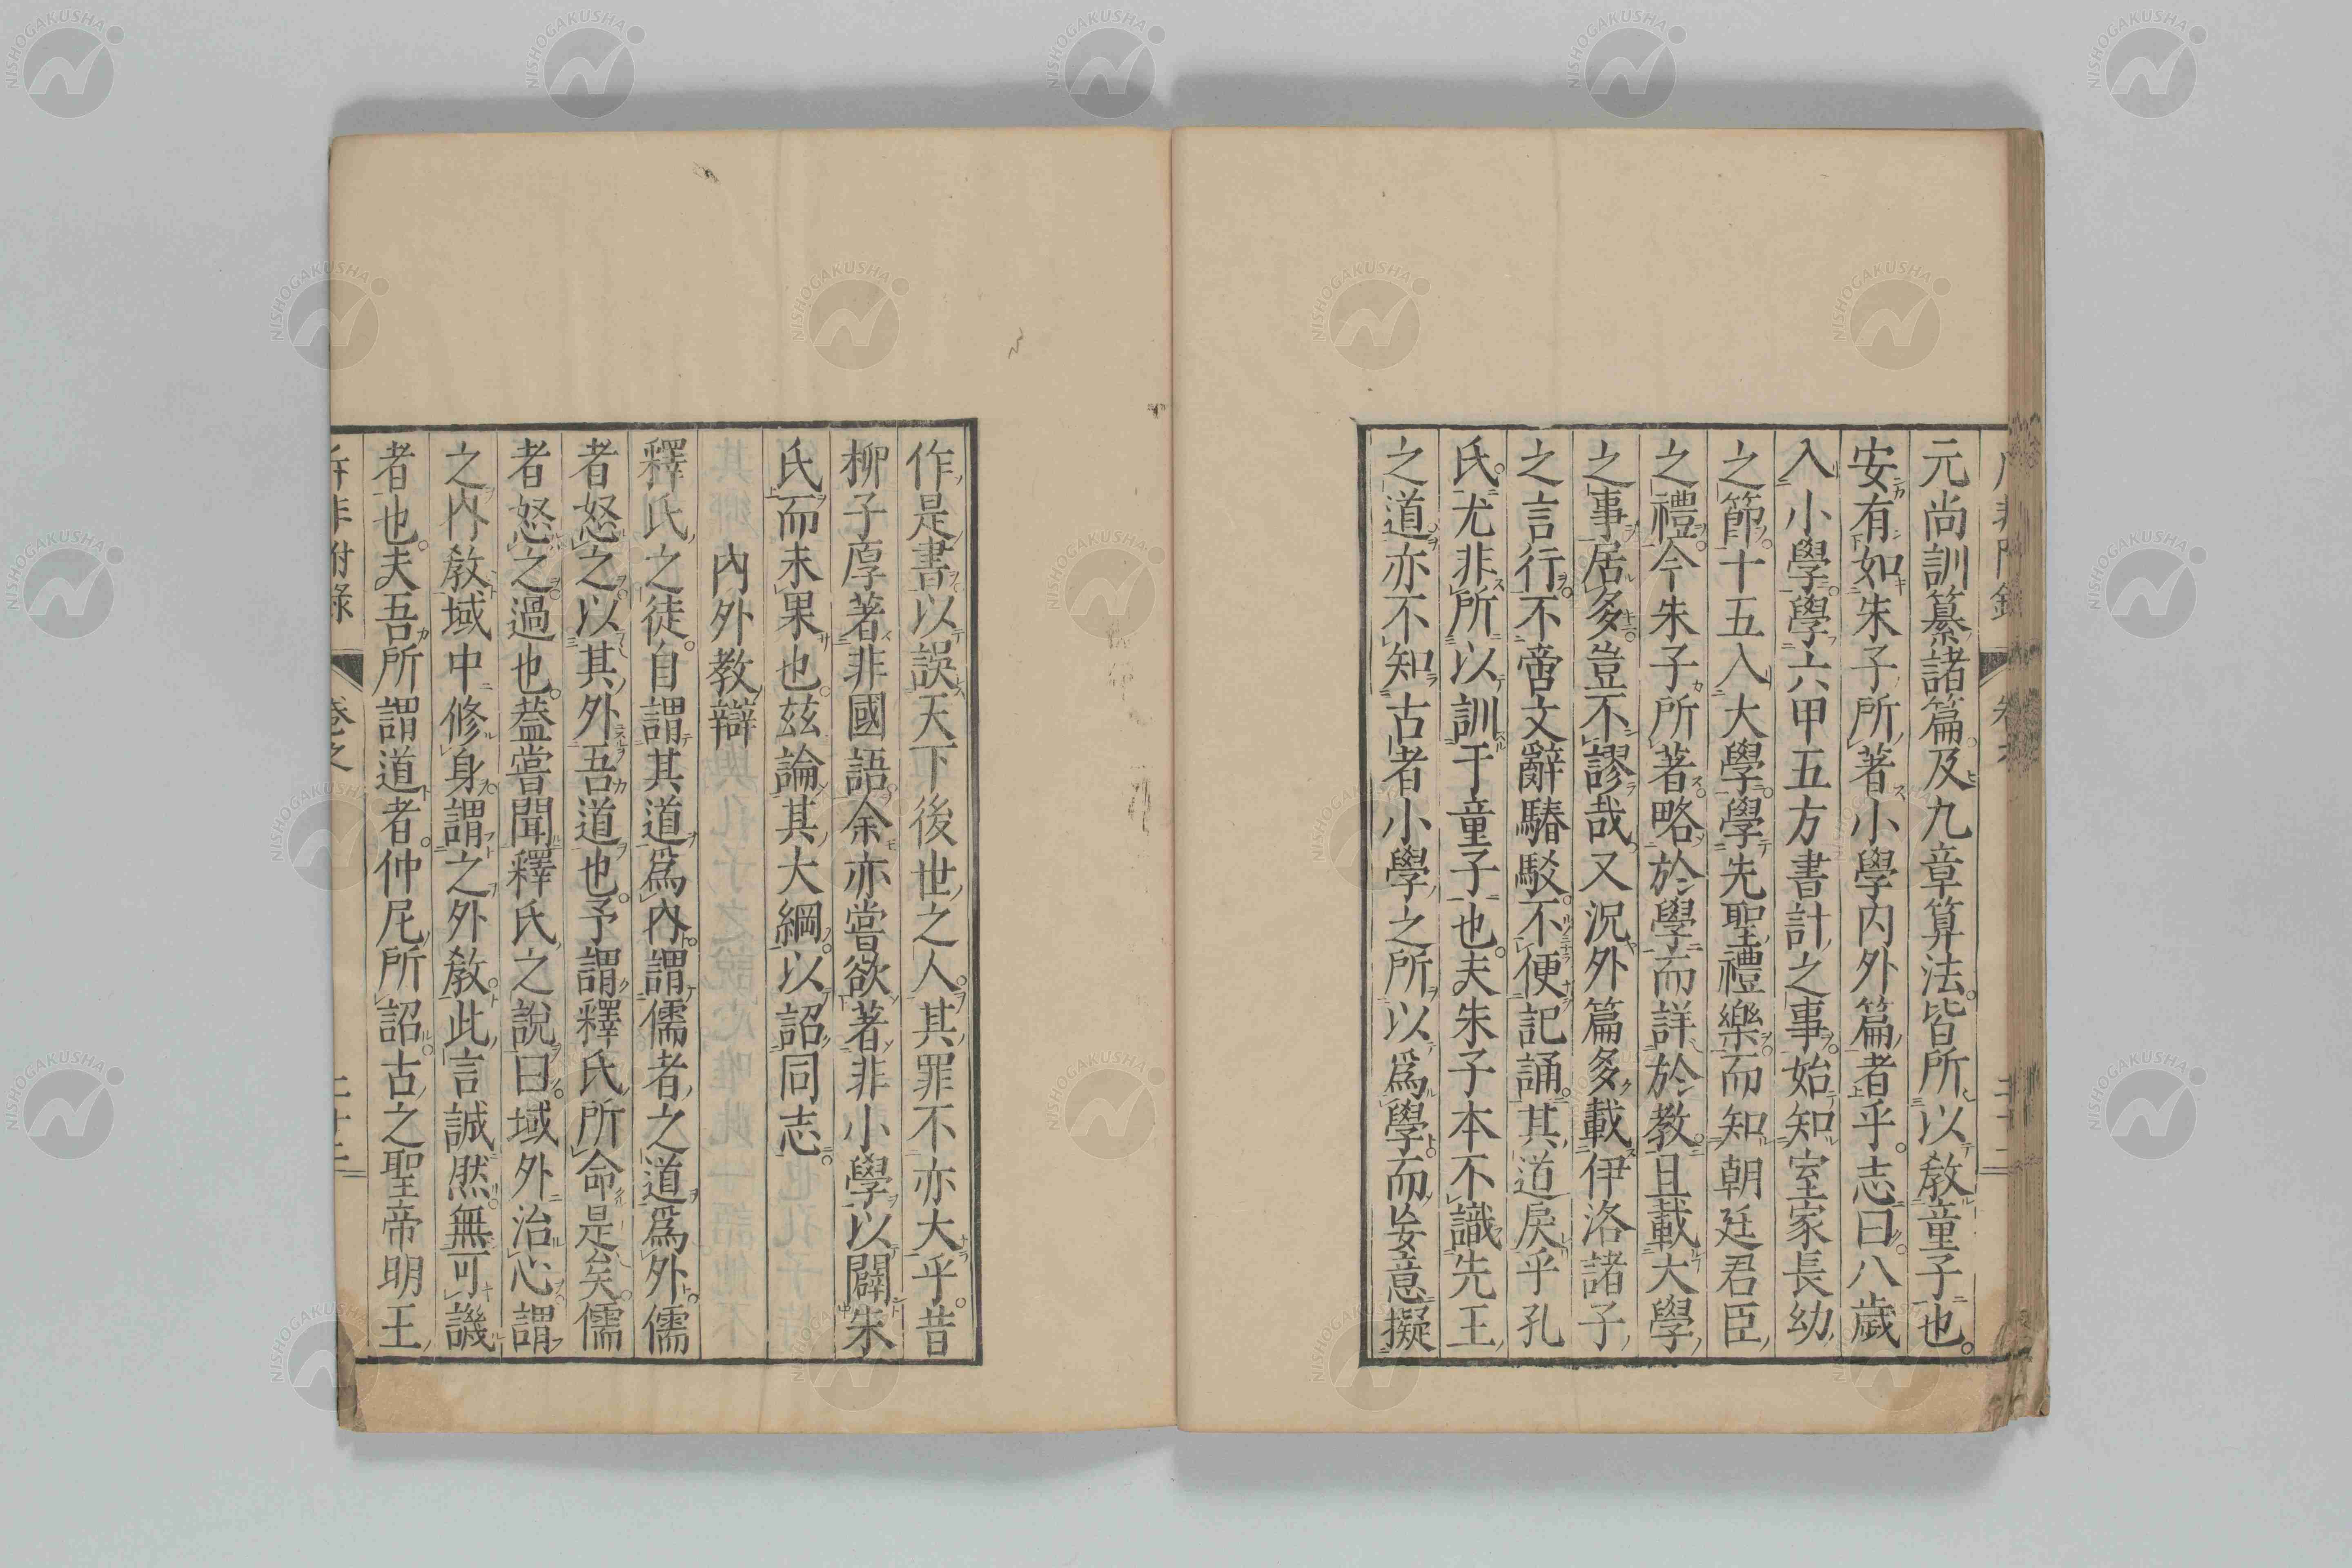 元尚訓纂諸篇及九章算法皆所以教童子也
安有如朱子所著小學内外篇者乎志曰八歳
入小學學六甲五方書計之事始知室家長幼
之節十五入大學學先聖禮樂而知朝廷君臣
之禮今朱子所著略於學而詳於教且載大學
之事居多豈不謬哉又況外篇多載伊洛諸子
之言行不啻文辭騞駁不便記誦其道戻乎孔
氏尤非所以訓于童子也夫朱子本不識先王
之道亦不知古者小學之所以爲學而妄意擬
作是書以誤天下後世之人其罪不亦大乎昔
柳子厚著非國語余亦嘗欲著非小學以闢朱
氏而未果也茲論其大綱以詔同志
内外教辯
釋氏之徒自謂其道爲内謂儒者之道爲外儒
者怒之以其外吾道也予謂釋氏所命是矣儒
者怒之過也葢嘗聞釋氏之說曰域外治心謂
之内教域中修身謂之外教此言誠然無可譏
者也夫吾所謂道者仲尼所詔古之聖帝明王
斥非附錄